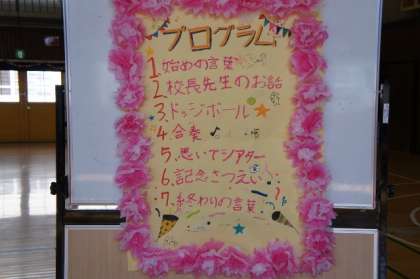 プログラム
1 始めの言葉
2 校長先生のお話
3.ドッジボール
4 合奏
5.思いでシアター
6.記念さつえい
7.終わりの言葉